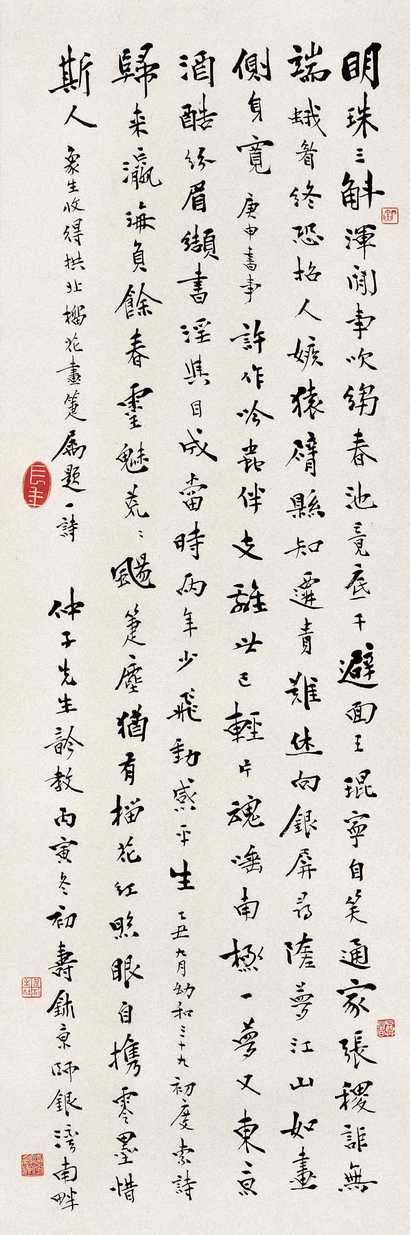 明珠三斛渾閒事吹縐春池竟底干避面王琨寧自笑通家張稷詎無
端蛾眉終恐招人嫉猿臂縣知遷責難建向銀屏尋隂夢江山如畫
側身寬 庚申書事 許作吟蟲伴支離此已輕片魂唾南極一夢又東京
酒醋紛眉纈書淫與目成當時兩年少飛動感平生 乙丑九月幼和三十九初度索詩
歸來瀛海負餘春靈魅荒〻颺箑塵猶有榴花紅照眼自攜零墨惜
斯人 象生收得拱北榴花畫箑属題一詩 仲子先生診教丙寅冬初壽鉨京師銀灣南畔